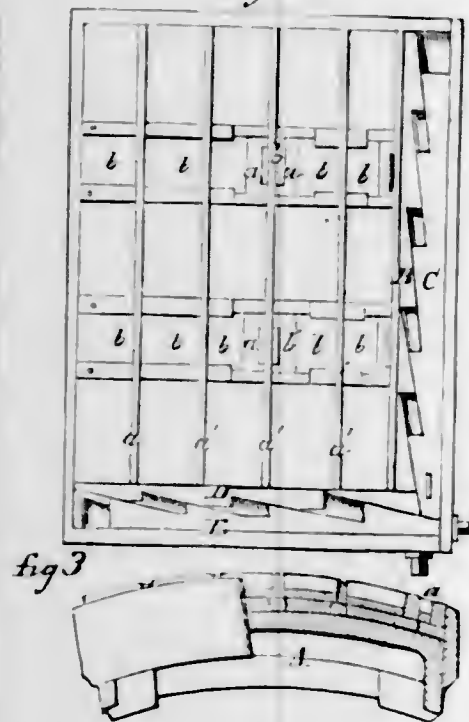 b b a a b b
B C
b b b a b b b
a a' a' a'
D
E
fig 3
a
A